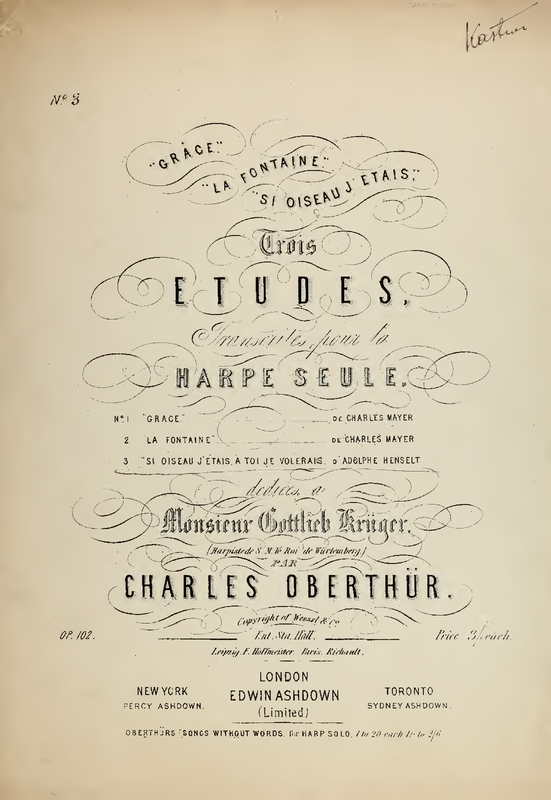 Nº 3
"GRÂCE."
"LA FONTAINE."
"SI OISEAU J'ETAIS,"
Trois
ETUDES,
Transcrites, pour la
HARPE SEULE.
Nº 1 "GRACE" DE CHARLES MAYER
2 "LA FONTAINE" DE CHARLES MAYER
3 "SI OISEAU J'ETAIS, A TOI JE VOLERAIS. D'ADOLPHE HENSELT
dediées, a
Monsieur Gottlieb Krüger.
(Harpiste de S. M. le Roi de Würtemberg,)
PAR
CHARLES OBERTHÜR.
Copyright of Wessel & Co
OP. 102. Ent. Sta. Hall. Price 3/ each.
Leipzig, F. Hoffmeister. Paris, Richault.
LONDON
NEW YORK EDWIN ASHDOWN TORONTO
PERCY ASHDOWN. (Limited) SYDNEY ASHDOWN.
OBERTHÜRS "SONGS WITHOUT WORDS. for HARP SOLO, 1 to 20 each 1/- to 2/6